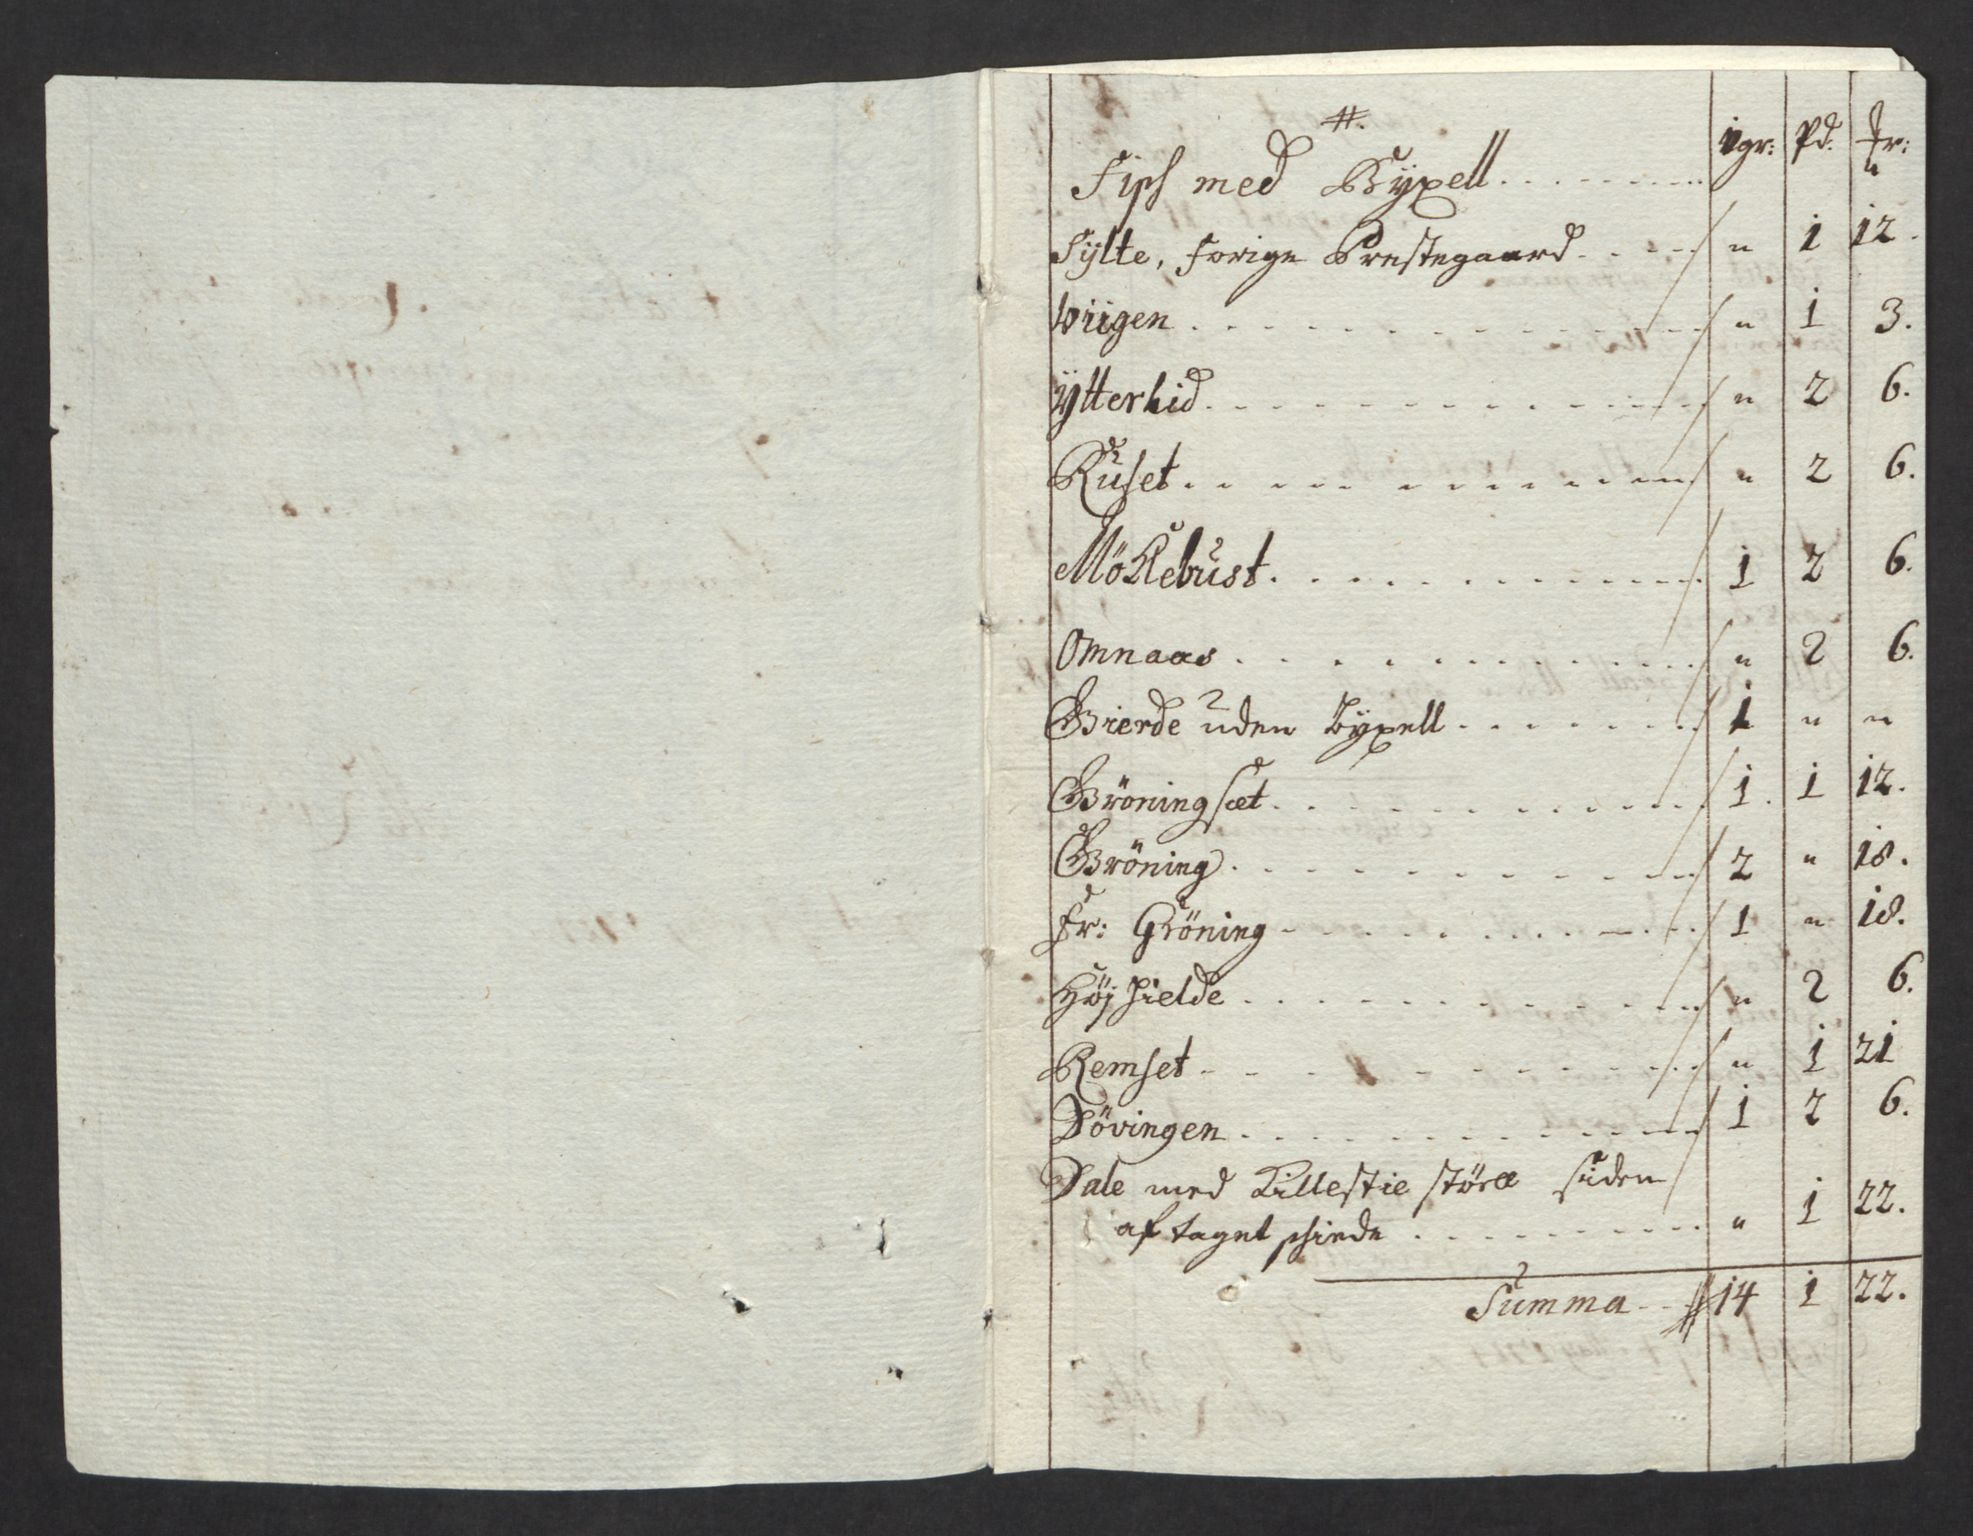 #.
vgr: Pd. fr:
Fish med Byxell . . . . . . . .
"
Sylte, forige Prestegaard . . . . " 1 12.
Wiigen . . . . . . . . . . " 1 3.
Ytterlid . . . . . . . . . . " 2 6.
Ruset . . . . . . . . . . " 2 6.
Möklebust . . . . . . . . . . 1 2 6.
Omnaas . . . . . . . . . . " 2 6.
Gierde uden Byxell . . . . . . . 1 " "
Gröningsæt . . . . . . . . . . 1. 1 12.
Gröning . . . . . . . . . . 2 " 18.
fr: Gröning . . . . . . . . . . 1 " 18.
Höj hielde . . . . . . . . . . " 2 6.
Remset . . . . . . . . . . " 1 21
Dövingen . . . . . . . . . . 1 2 6.
Dale med Lillestie störe siden
af taget . . . . . . . . " 1 22.
Summa . . 14 1 22.